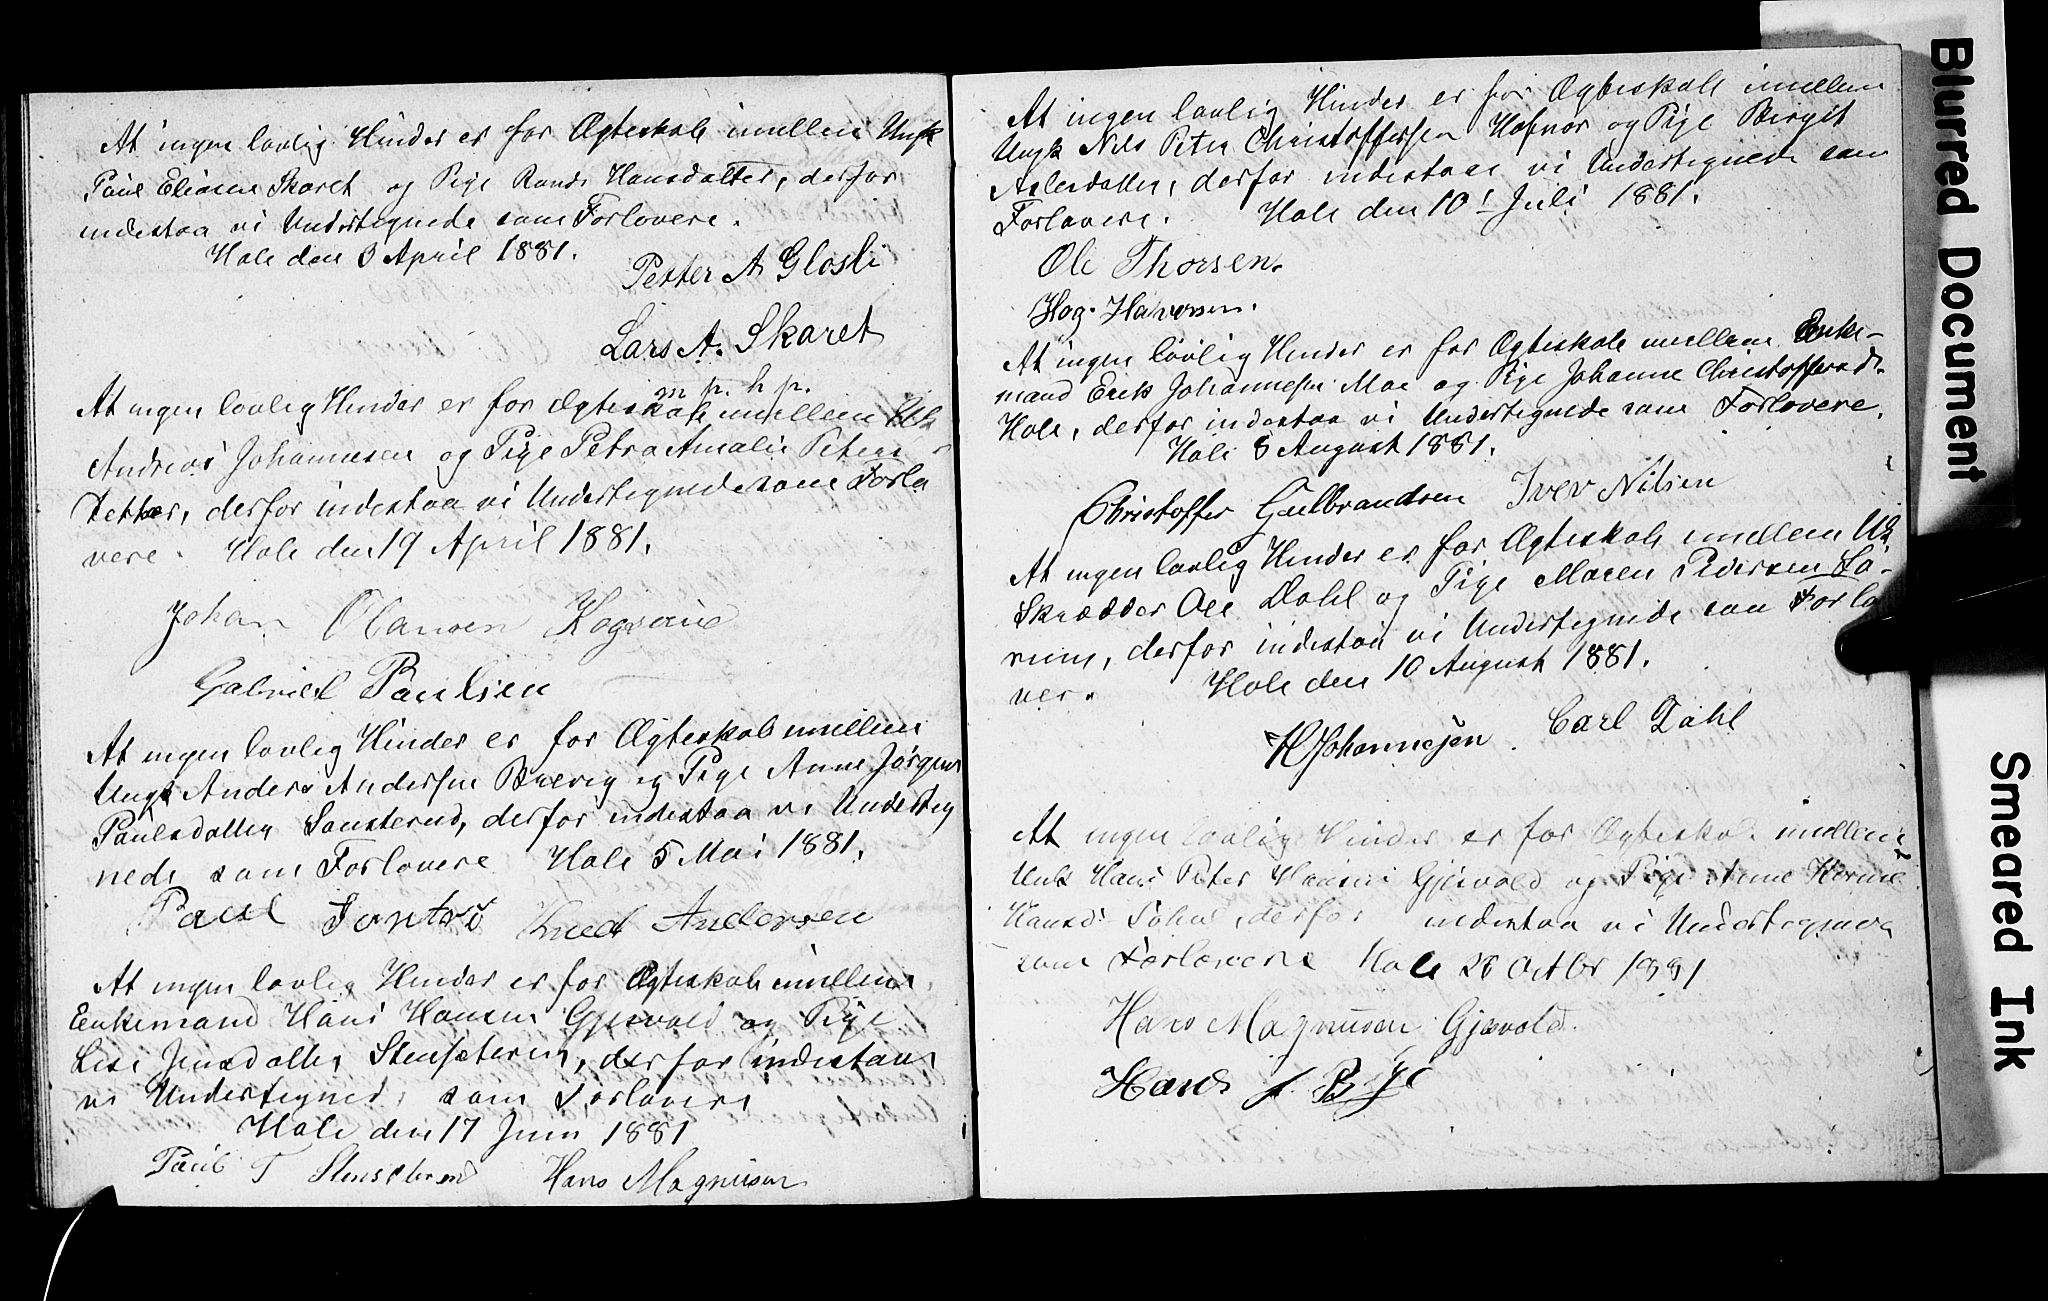 At ingen lovlig Hinder er for Ægteskab imellem Ungk
Paul Eliasen Skaret og Pige Randi Hansdatter, derfor
indestaa vi Undertegnede som Forlovere.
Hole den 3 April 1881.
Petter A Glosli
Lars A. Skaret
m p. h p.
At ingen lovlig Hinder er for Ægteskab imellem Uk
Andreas Johannesen og Pige Petra Amalie Peters
datter, derfor indestaa vi Undertegnede som Forlo
vere. Hole den 19 April 1881.
Johan Olausen
Gabriel Paulsen
At ingen lovlig Hinder er for Ægteskab imellem
Ungk Anders Andersen Brevig og Pige Anne Jørgine
Paulsdatter Sonsterud, derfor indestaa vi Underteg
nede som Forlovere Hole 5 Mai 1881.
Paul Knud Andersen
At ingen lovlig Hinder er for Ægteskab imellem
Enkemand Hans Hansen Gjesvold og Pige
Lise Jensdatter, derfor indestaar
vi Undertegnede som Forlovere
Hole den 17 Juni 1881
Paul T Hans Magnusen
At ingen lovlig Hinder er for Ægteskab imellem
Ungk Nils Peter Christoffersen Hafnor og Pige Birgit
Aslesdatter, derfor indestaar vi Undertegnede som
Forlovere. Hole den 10! Juli 1881.
Ole Thorsen.
Hag. Halvorsen.
At ingen lovlig Hinder er for Ægteskab imellem Enke-
mand Erik Johannesen Moe og Pige Johanne Christoffersdt.
Hole, derfor indestaa vi Undertegnede som Forlovere.
Hole 8 August 1881.
Christoffer Gulbrandsen Iver Nilsen
At ingen lovlig Hinder er for Ægteskab imellem Uk
Skrædder Ole Dahl og Pige Maren Pedersen Lo-
rum, derfor indestaa vi Undertegnede som Forlo
ver. Hole den 10 August 1881.
H Johannesen. Carl Dahl
At ingen lovlig Hinder er for Ægteskab imellem
Unk Hans Peter Hansen Gjesvold og Pige Anne
Hansd: derfor indestaa vi Undertegnede
som Forlovere Hole 28 Octbr 1881
Hans Magnusen Gjesvold.
Hans J. Bye
Blurred Document
Smeared Ink